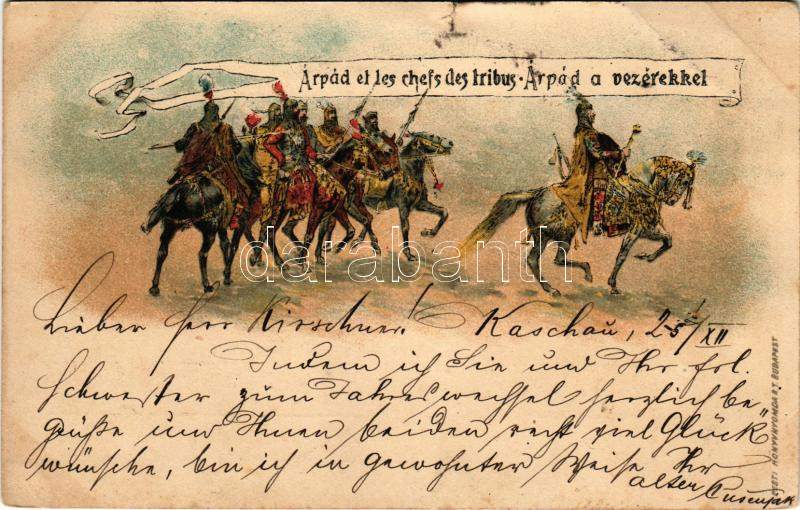 Árpád et les chefs des tribus · Árpád a vezérekkel
darabanth
Lieber Herr Kirschner! Kaschau, 25/XII
Indem ich Sie und Ihr frl.
Schwester zum Jahreswechsel herzlich be„
grüße und Ihnen beiden recht viel Glück
wünsche, bin ich in gewohnter Weise Ihr
alter
KÖNYVNYOMDA R.T. BUDAPEST